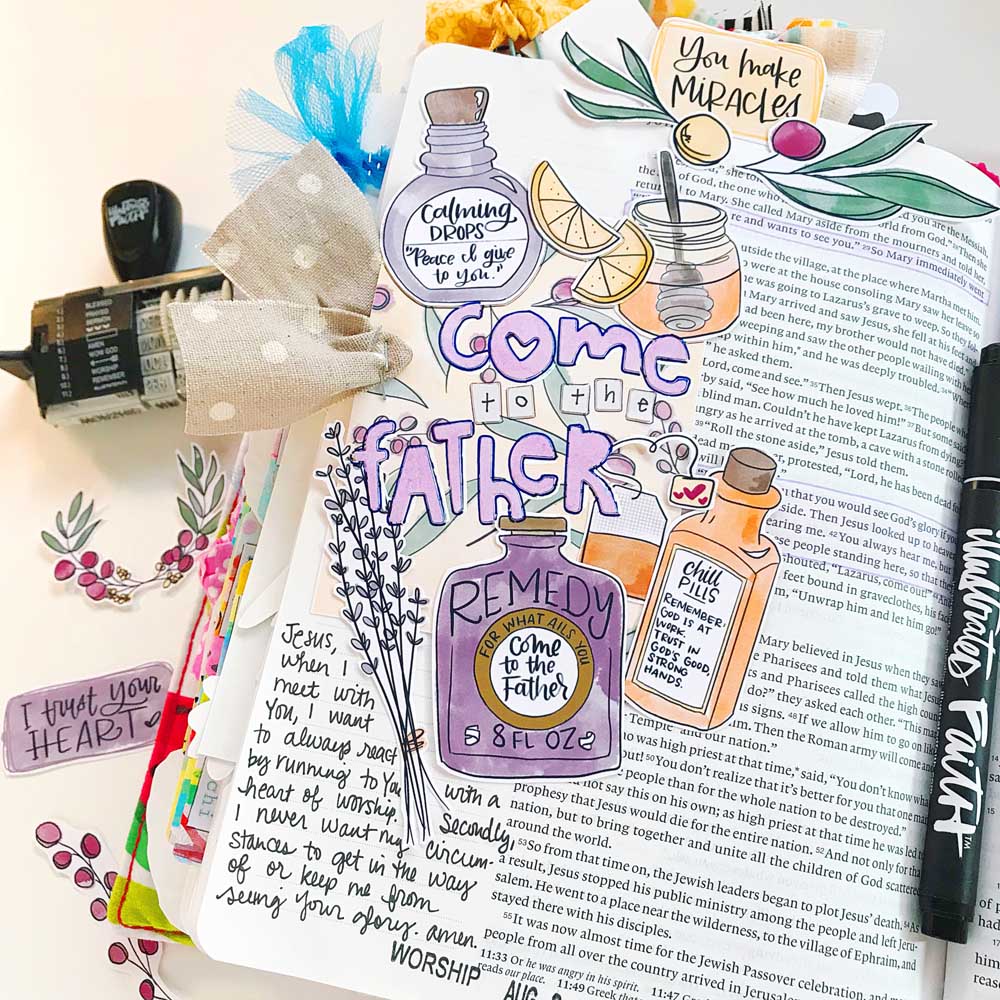 You make
MIRACLES
Calming
DROPS
"Peace I give
to you."
come
to the
FATHER
REMEDY
FOR WHAT AILS YOU
Come
to the
Father
8 FL OZ
chill
PILLS
REMEMBER:
GOD IS AT
WORK.
TRUST IN
GOD'S GOOD,
STRONG
HANDS.
I trust your
HEART
Jesus,
when I
meet with
You, I want
to always react
by running to You with a
heart of worship. Secondly,
I never want my circum-
stances to get in the way
of or keep me from
seeing your glory. amen.
WORSHIP
AUG
illustrated FAITH™
BLESSED
AMEN
WOW GOD
WORSHIP
REMEMBER
," she told
of God, the one who
d you are the Messiah,
world from God." 28Then she
to Mary. She called Mary aside from the mourners and told her,
re and wants to see you." 29So Mary immediately went
utside the village, at the place where Martha met him.
were at the house consoling Mary saw her leave so
was going to Lazarus's grave to weep. So they
Mary arrived and saw Jesus, she fell at his feet and
ad been here, my brother would not have died."
weeping and saw the other people wailing with
up within him,* and he was deeply troubled. 34"Where
he asked them.
Lord, come and see." 35Then Jesus wept. 36The people
by said, "See how much he loved him!" 37But some said,
blind man. Couldn't he have kept Lazarus from dying?"
ngry as he arrived at the tomb, a cave with a stone rolled
39"Roll the stone aside," Jesus told them.
protested, "Lord, he has been dead for
u that you would see God's glory if you
side. Then Jesus looked up to heaven
earing me. 42You always hear me, but
ese people standing here, so that
shouted, "Lazarus, come out!" 44And
feet bound in graveclothes, his face
m, "Unwrap him and let him go!"
Mary believed in Jesus when they saw
e Pharisees and told them what Jesus
ts and Pharisees called the high council
do?" they asked each other. "This man
is signs. 48If we allow him to go on like
m. Then the Roman army will come and
Temple and our nation."
o was high priest at that time,* said, "You don't know what
out! 50You don't realize that it's better for you that one man
people than for the whole nation to be destroyed."
not say this on his own; as high priest at that time he was led to
prophesy that Jesus would die for the entire nation. 52And not only for that
nation, but to bring together and unite all the children of God scattered
around the world.
53So from that time on, the Jewish leaders began to plot Jesus' death. 54As
a result, Jesus stopped his public ministry among the people and left Jeru-
salem. He went to a place near the wilderness, to the village of Ephraim, and
stayed there with his disciples.
55It was now almost time for the Jewish Passover celebration, and many
people from all over the country arrived in Jerusalem
11:33 Or he was angry in his spirit. 11:47
reads our place. 11:49 Greek